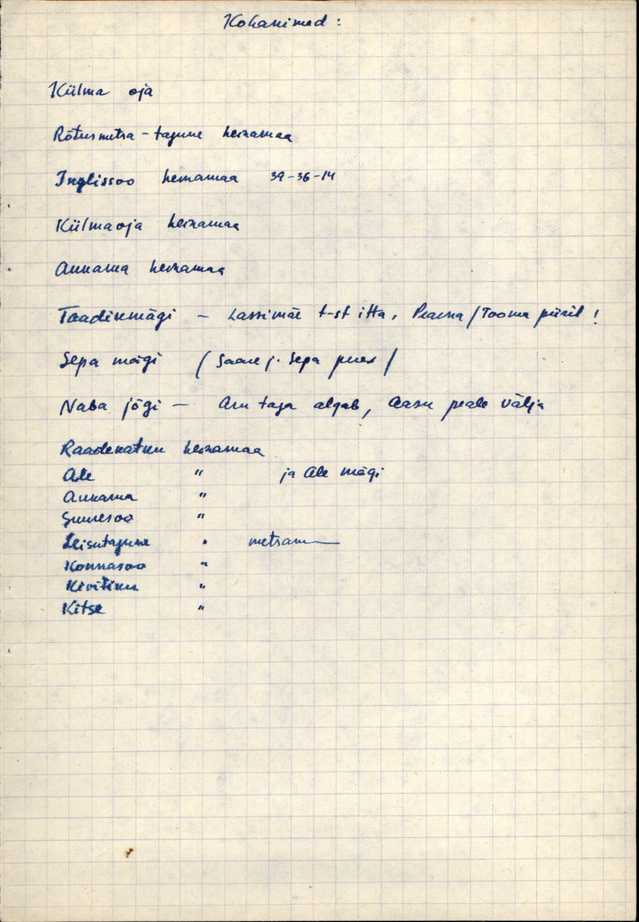 Kohanimed:
Külma oja
Rõtusmetsa-tagune heinamaa
Inglissoo heinamaa 39-36-14
Külmaoja heinamaa
Annama heinamaa
Taadinmägi - Lassimäe t-st itta, Tooma piiril!
Sepa mägi (Saare j. Sepa
Naba jõgi - Aru taga algab, Aasu peale välja
heinamaa
Ale " ja Ale mägi
Annama "
Suuresoo "
Leisutagune "
Konnasoo "
"
Kitse "